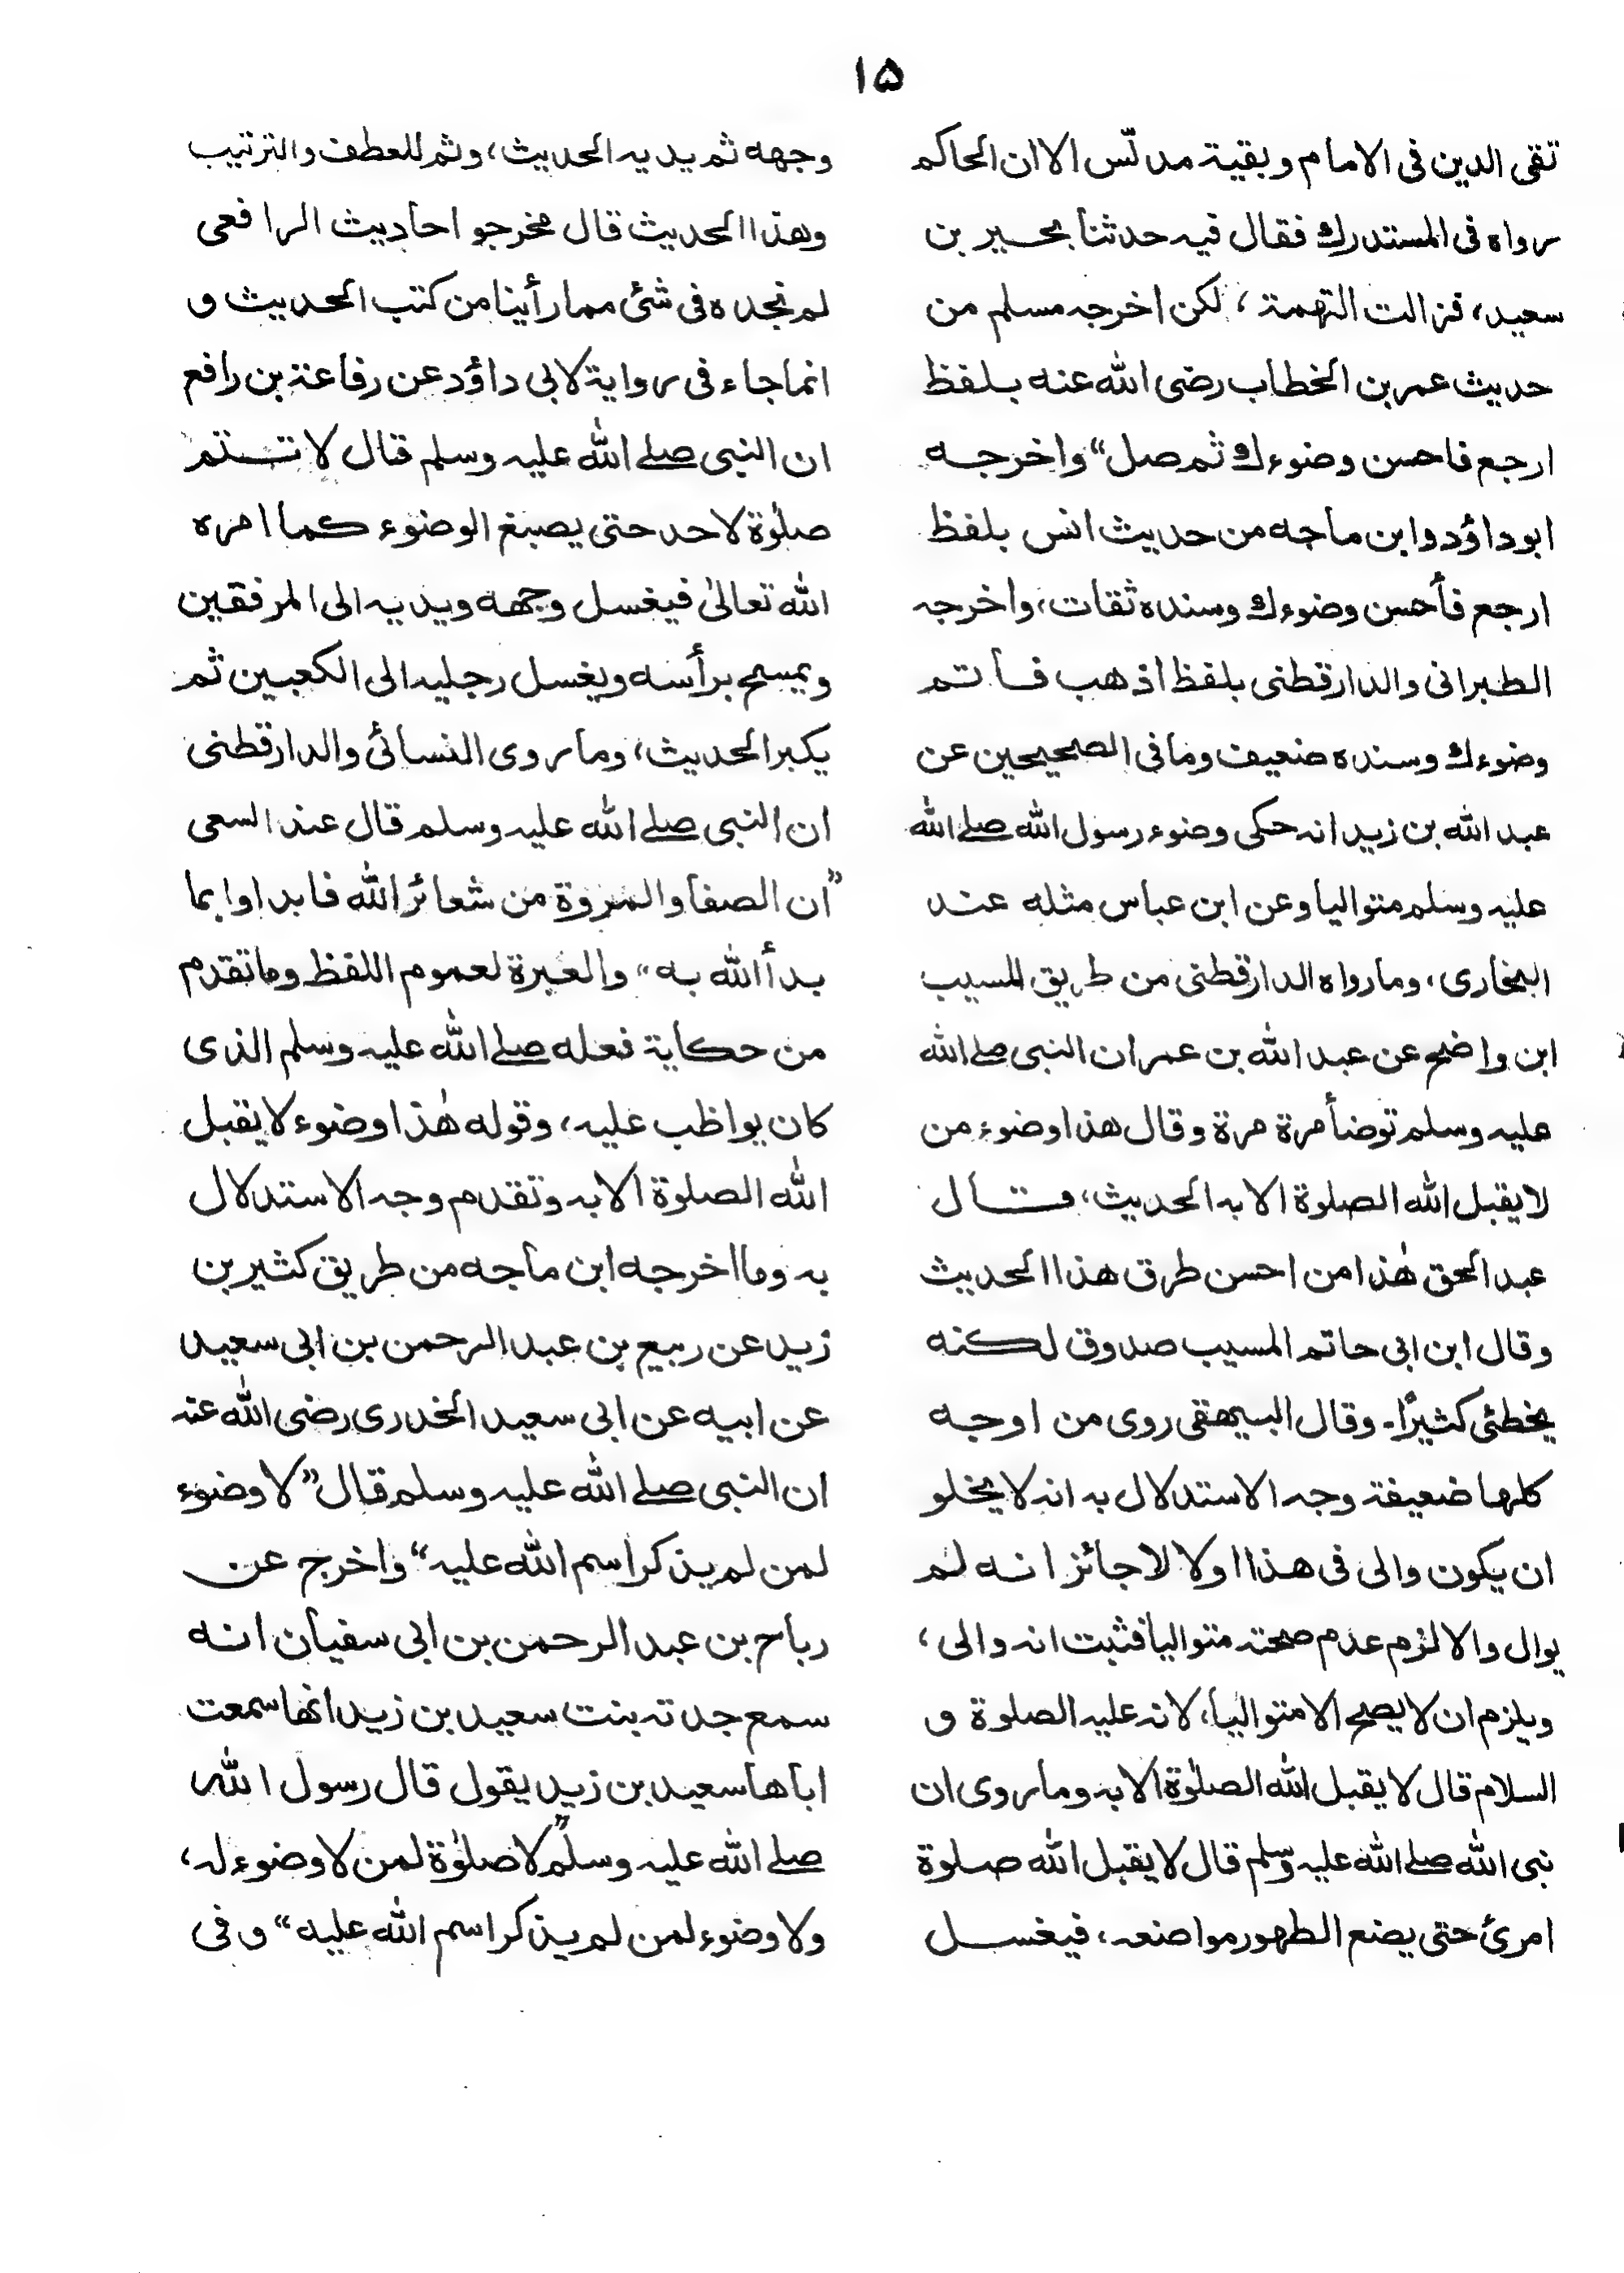 ۱۵
تقی الدین فی الامام وبقیة مدلّس الا ان الحاکم
رواه فی المستدرك فقال فیه حدثنا بحیر بن
سعید، فزالت التهمة، لکن اخرجه مسلم من
حدیث عمر بن الخطاب رضی الله عنه بلفظ
ارجع فاحسن وضوءك ثم صل“ واخرجه
ابوداؤد وابن ماجه من حدیث انس بلفظ
ارجع فأحسن وضوءك وسنده ثقات، واخرجه
الطبرانی والدارقطنی بلفظ اذهب فأتم
وضوءك وسنده ضعیف وما فی الصحیحین عن
عبد الله بن زید انه حکی وضوء رسول الله صلے الله
علیه وسلم متوالیا وعن ابن عباس مثله عند
البخاری، وما رواه الدارقطنی من طریق المسیب
ابن واضح عن عبد الله بن عمر ان النبی صلے الله
علیه وسلم توضأ مرة مرة وقال هذا وضوء من
لا یقبل الله الصلوة الا به الحدیث، قال
عبد الحق هٰذا من احسن طرق هذا الحدیث
وقال ابن ابی حاتم المسیب صدوق لکنه
یخطئ کثیرًا۔ وقال البیهقی روی من اوجه
کلها ضعیفة وجه الاستدلال به انه لا یخلو
ان یکون والی فی هذا اولا لا جائز انه لم
یوال والا لزم عدم صحته متوالیا فثبت انه والی،
ویلزم ان لا یصح الا متوالیا، لانه علیه الصلوة و
السلام قال لا یقبل الله الصلوٰة الا به وما روی ان
نبی الله صلے الله علیه وسلم قال لا یقبل الله صلوة
امرئ حتی یضع الطهور مواضعه، فیغسل
وجهه ثم یدیه الحدیث، وثم للعطف والترتیب
وهذا الحدیث قال مخرجو احادیث الرافعی
لم نجده فی شئ مما رأینا من کتب الحدیث و
انما جاء فی روایة لابی داؤد عن رفاعة بن رافع
ان النبی صلے الله علیه وسلم قال لا تتم
صلوٰة لاحد حتی یصبغ الوضوء کما امره
الله تعالیٰ فیغسل وجهه ویدیه الی المرفقین
ویمسح برأسه ویغسل رجلیه الی الکعبین ثم
یکبر الحدیث، وما روی النسائی والدارقطنی
ان النبی صلے الله علیه وسلم قال عند السعی
”ان الصفا والمروة من شعائر الله فابداوا بما
بدأ الله به“ والعبرة لعموم اللفظ وما تقدم
من حکایة فعله صلے الله علیه وسلم الذی
کان یواظب علیه، وقوله هٰذا وضوء لا یقبل
الله الصلوة الا به وتقدم وجه الاستدلال
به وما اخرجه ابن ماجه من طریق کثیر بن
زید عن ربیع بن عبد الرحمن بن ابی سعید
عن ابیه عن ابی سعید الخدری رضی الله عنه
ان النبی صلے الله علیه وسلم قال ”لا وضوء
لمن لم یذکر اسم الله علیه“ واخرج عن
رباح بن عبد الرحمن بن ابی سفیان انه
سمع جدته بنت سعید بن زید انها سمعت
اباها سعید بن زید یقول قال رسول الله
صلے الله علیه وسلم ”لا صلوٰة لمن لا وضوء له،
ولا وضوء لمن لم یذکر اسم الله علیه“ و فی